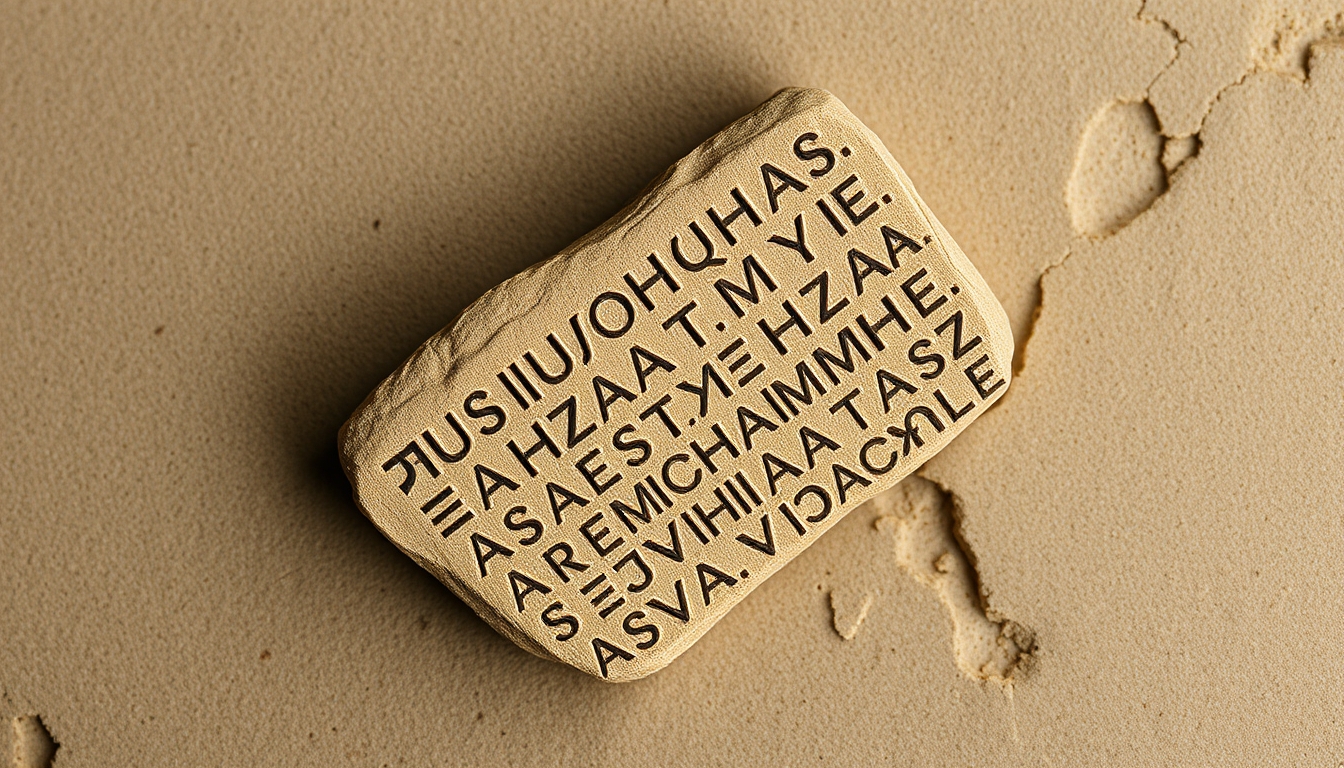 ЯUSIIUJOHQHAS.
Ξ AHZAAT. M YIE.
ASAEST. ʎΞ HZAA.
AREMICHAIMMHE.
SΞJVIHIIAATASZ
ASVA. VIƆACKULE